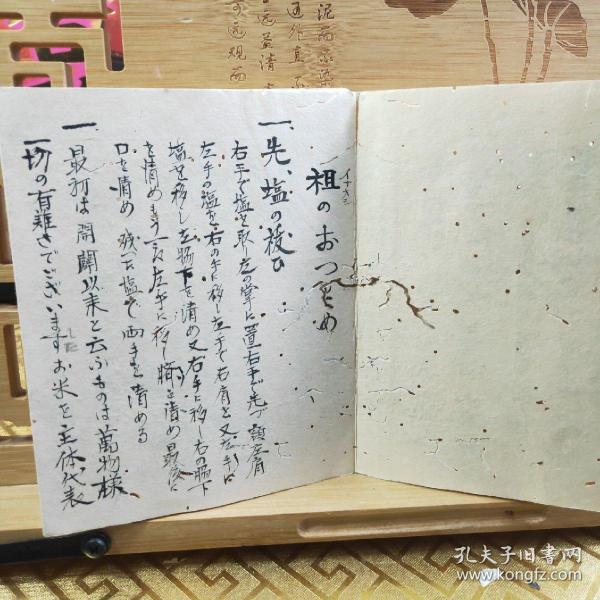 祖のおつとめ
一、先、塩の祓ひ
右手で塩を取り左の掌に置右手で先づ頭左肩
左手の塩を右の手に移し左手で右肩と又左手に
塩を移し左腸下を清め又右手に移し右の腸下
を清めもう一度左手に移し臍を清め最後に
口を清め残った塩で両手を清める
一最初は開闢以来と云ふものは萬物様
一切の有難さでございますお米を主体代表
泥而不染
通外直不
远益清
可远观而
孔夫子旧书网
www.kongfz.com